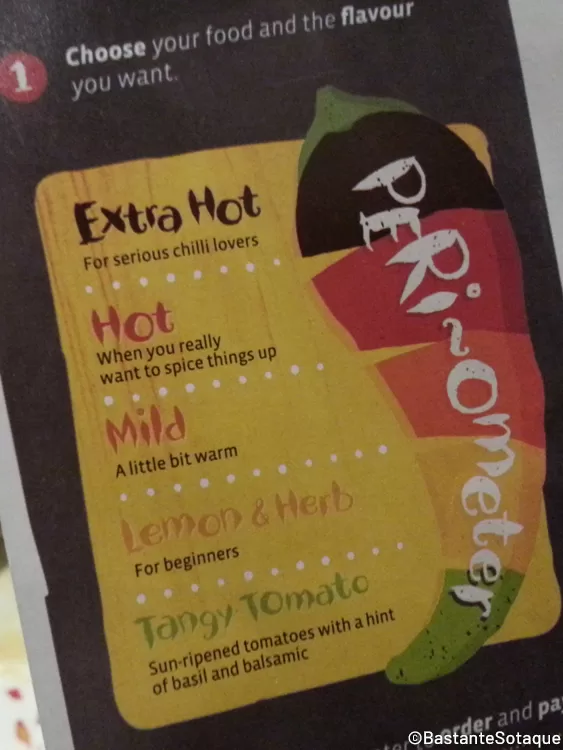 1
Choose your food and the flavour
you want.
Extra Hot
For serious chilli lovers
Hot
When you really
want to spice things up
Mild
A little bit warm
Lemon & Herb
For beginners
Tangy Tomato
Sun-ripened tomatoes with a hint
of basil and balsamic
PERi~Ometer
order and pay
©BastanteSotaque